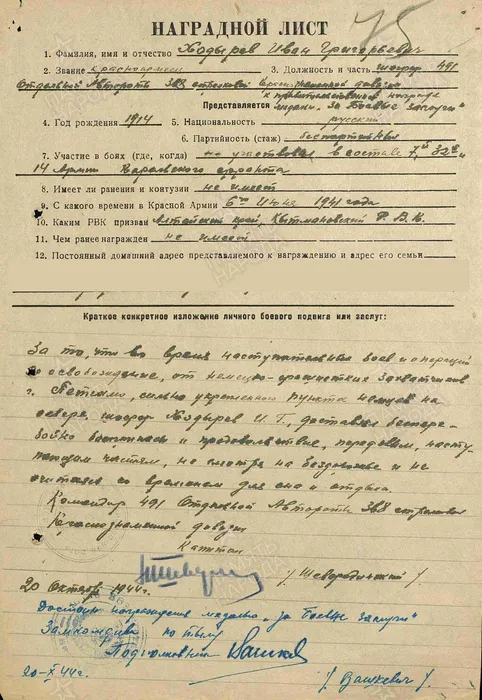 75
НАГРАДНОЙ ЛИСТ
1. Фамилия, имя и отчество Кодырев Иван Григорьевич
2. Звание красноармеец 3. Должность и часть шофер 491
Отдельной Автороты 368 стрелковой Краснознаменной дивизии
Представляется к правительственной награде
медали „За боевые заслуги"
4. Год рождения 1914 5. Национальность русский
6. Партийность (стаж) беспартийный
7. Участие в боях (где, когда) не участвовал в составе 7й 32й и
14 Армии Карельского фронта
8. Имеет ли ранения и контузии не имеет
9. С какого времени в Красной Армии 6го Июня 1941 года
10. Каким РВК призван Алтайский край, Кытмановский Р.В.К.
11. Чем ранее награжден не имеет
12. Постоянный домашний адрес представляемого к награждению и адрес его семьи
Краткое конкретное изложение личного боевого подвига или заслуг:
За то, что во время наступательных боев и операций
по освобождению, от немецко-фашистких захватчиков
г. Петсамо, сильно укрепленного пункта немцев на
севере, шофер Кодырев И. Г., доставлял беспере-
бойно боеприпасы и продовольствие, передовым, насту-
пающим частям, не смотря на бездорожье и не
считаясь со временем для сна и отдыха
Командир 491 Отдельной Автороты 368 стрелковой
Краснознаменной дивизии
Капитан
/Шевородинский/
20 Октября 1944 г.
Достоин награждения медалью „За боевые заслуги"
Зам. комдива по тылу
Подполковник
/Вашкевич/
20-X-44 г.